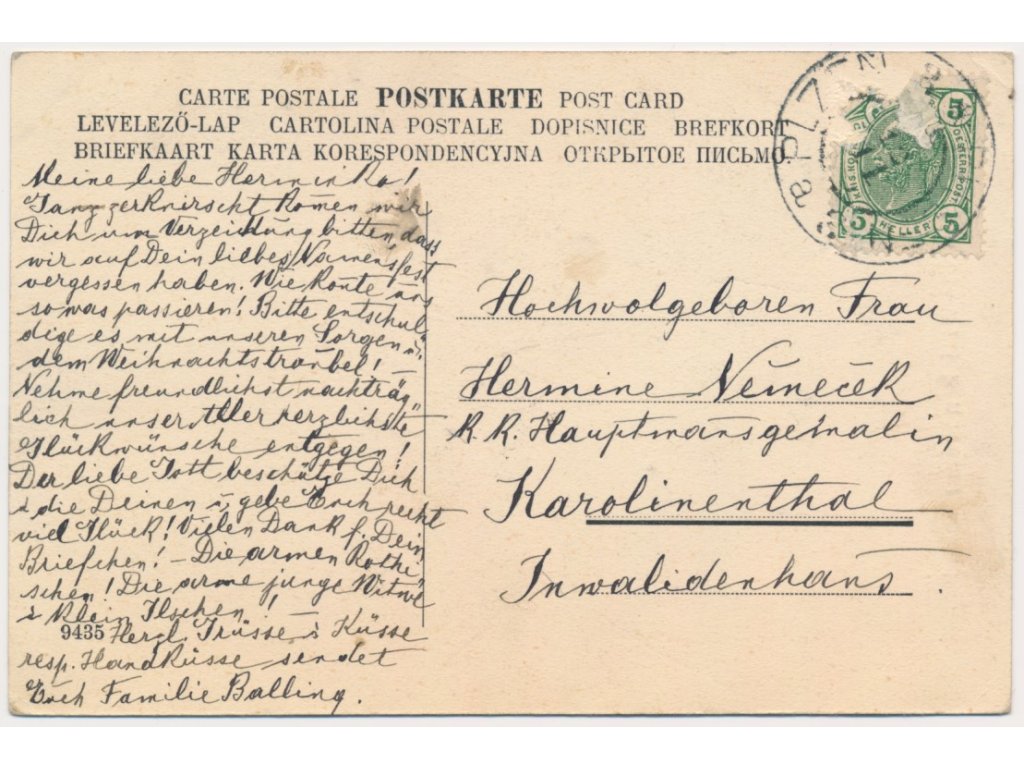 CARTE POSTALE POSTKARTE POST CARD
LEVELEZŐ-LAP CARTOLINA POSTALE DOPISNICE BREFKORT
BRIEFKAART KARTA KORESPONDENCYJNA ОТКРЫТОЕ ПИСЬМО
Meine liebe Herminko!
Ganz zerknirscht komen wir
Dich um Verzeihung bitten, dass
wir auf Dein liebes Namensfest
vergessen haben. Wie konte uns
so was passieren! Bitte entschul-
dige es mit unseren Sorgen u.
dem Weihnachtstroubel! —
Nehme freundlichst nachträg-
lich unser Aller herzlichste
Glückwünsche entgegen!
Der liebe Gott beschütze Dich
u die Deinen u, gebe Euch recht
viel Glück! Vielen Dank f. Dein
Briefchen! — Die armen Rothi-
schen! Die arme junge Witwe
u klein Ilschen! —
9435 Herzl. Grüsse u Küsse
resp. Handküsse sendet
Euch Familie Balling.
Hochwolgeboren Frau
Hermine Němeček
K. K. Hauptmansgemalin
Karolinenthal
Inwalidenhaus.
PLZEŇ
5 5
5 HELLER 5